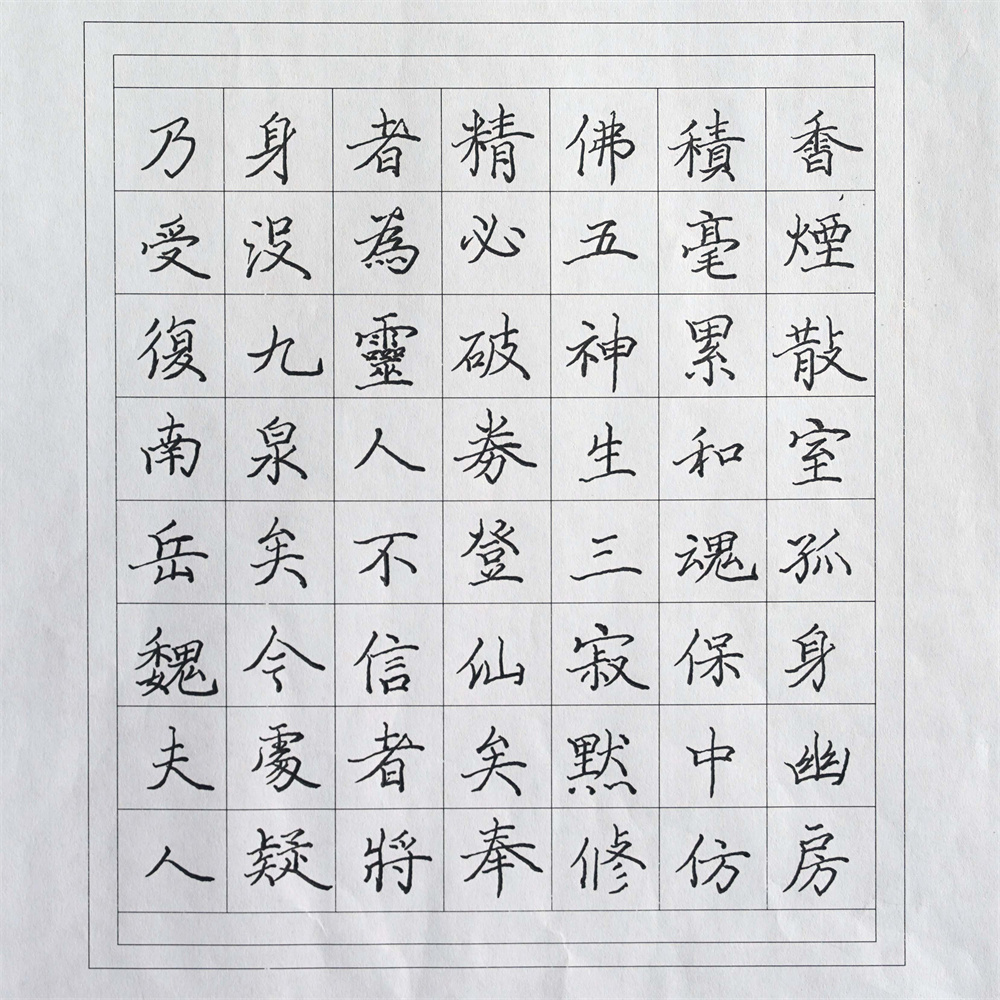 香煙散室孤身幽房
積毫累和魂保中仿
佛五神生三寂默修
精必破劵登仙矣奉
者為靈人不信者將
身没九泉矣今處疑
乃受復南岳魏夫人